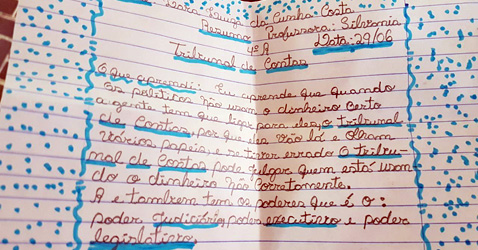 Souza da Cunha Costa
Resumo Professora: Silvonia
4º A Data: 29/06
Tribunal de Contas
O que aprendi: Eu aprende que quando
os políticos não usam o dinheiro certo
a gente tem que para eles, o tribunal
de Contas, por que eles vão lá e olham
vários papeis, e se tiver errado o tribu-
nal de Contas pode julgar quem está usan-
do o dinheiro não corretamente.
A e tambem tem os poderes que é o:
poder Judiciário, poder executivo e poder
legislativo.